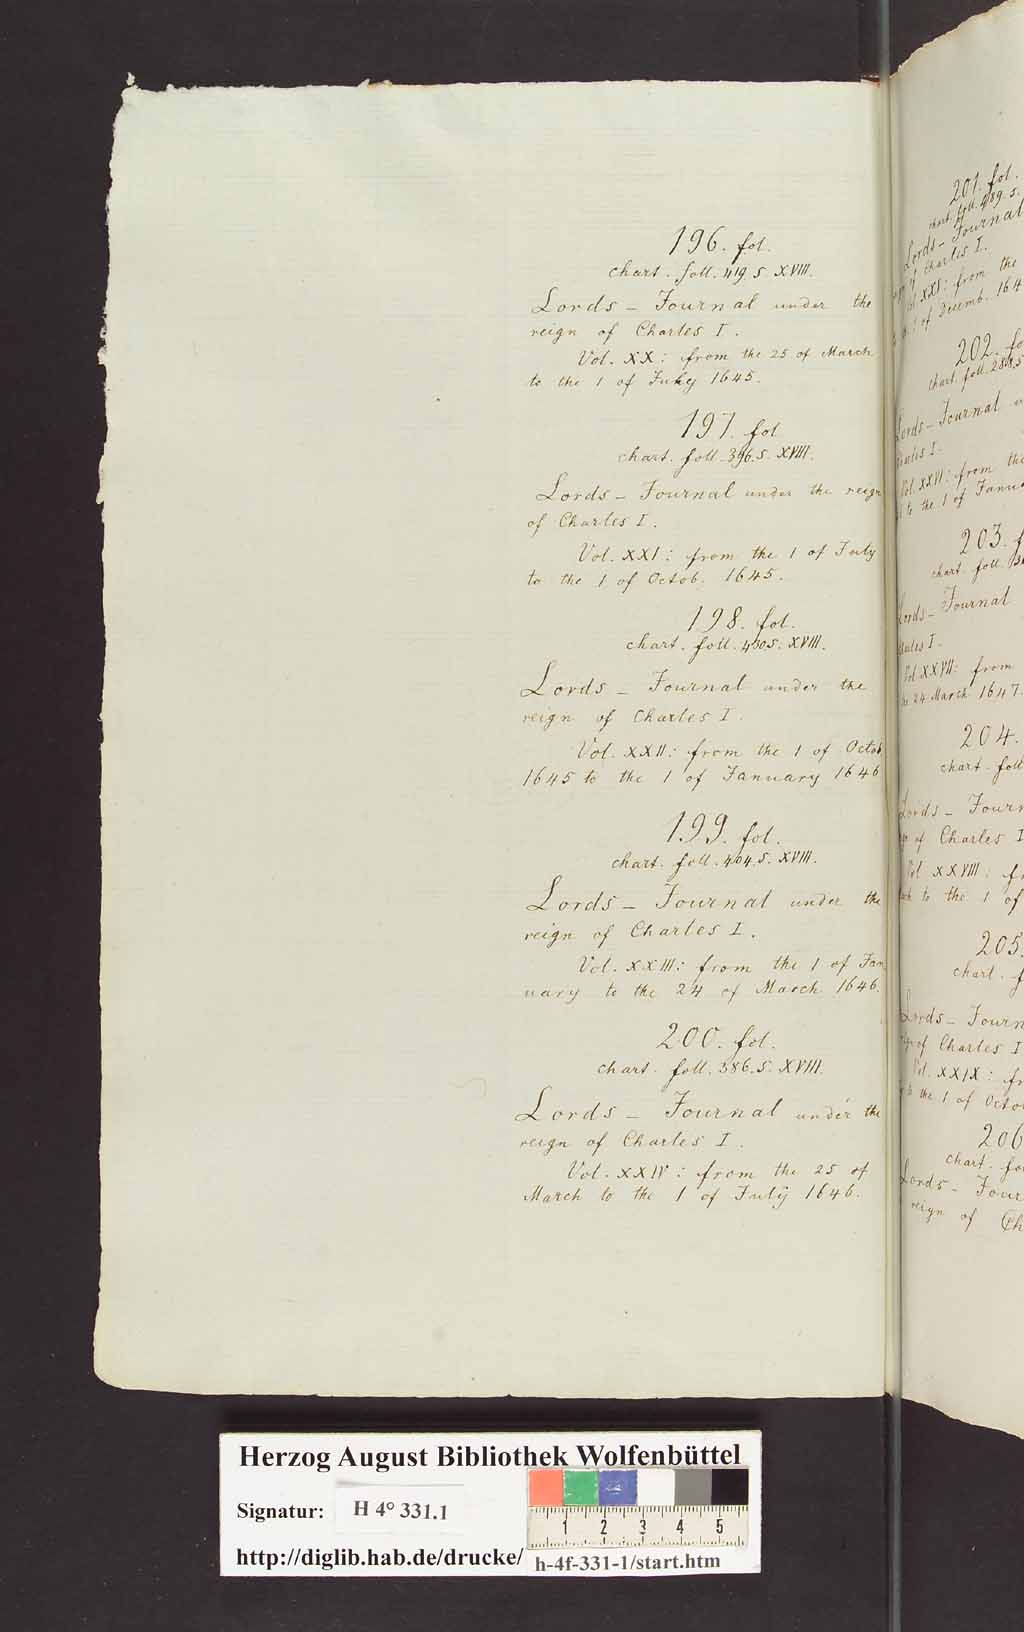 196. fol.
chart. foll. 419. s. XVIII.
Lords - Journal under the
reign of Charles I.
Vol. XX: from the 25 of March
to the 1 of July 1645.
197. fol
chart. foll. 396. s. XVIII.
Lords - Journal under the reign
of Charles I.
Vol. XXI: from the 1 of July
to the 1 of Octob. 1645.
198. fol.
chart. foll. 430 s. XVIII.
Lords - Journal under the
reign of Charles I.
Vol. XXII: from the 1 of Octob
1645 to the 1 of January 1646
199. fol.
chart. foll. 404. s. XVIII.
Lords - Journal under the
reign of Charles I.
Vol. XXIII: from the 1 of Jan
uary to the 24 of March 1646.
200. fol.
chart. foll. 386. s. XVIII.
Lords - Journal under the
reign of Charles I.
Vol. XXIV: from the 25 of
March to the 1 of July 1646.
201. fol.
chart. foll. 489. s.
Lords - Journal
of Charles I.
XXV: from the
1 of Decemb. 164
202. fo
chart. foll. 288. s
Lords - Journal
Charles I.
Vol. XXVI: from the
to the 1 of Janua
203. f
chart. foll.
Lords - Journal
Charles I.
Vol. XXVII: from
24 March 1647.
204.
chart. foll
Lords - Journ
of Charles I
Vol XXVIII: fr
to the 1 of
205.
chart. f
Lords - Journ
of Charles I
Vol. XXIX: fr
to the 1 of Octo
206
chart. fo
Lords - Jour
reign of Ch
Herzog August Bibliothek Wolfenbüttel
Signatur: H 4° 331.1
1 2 3 4 5
http://diglib.hab.de/drucke/ h-4f-331-1/start.htm